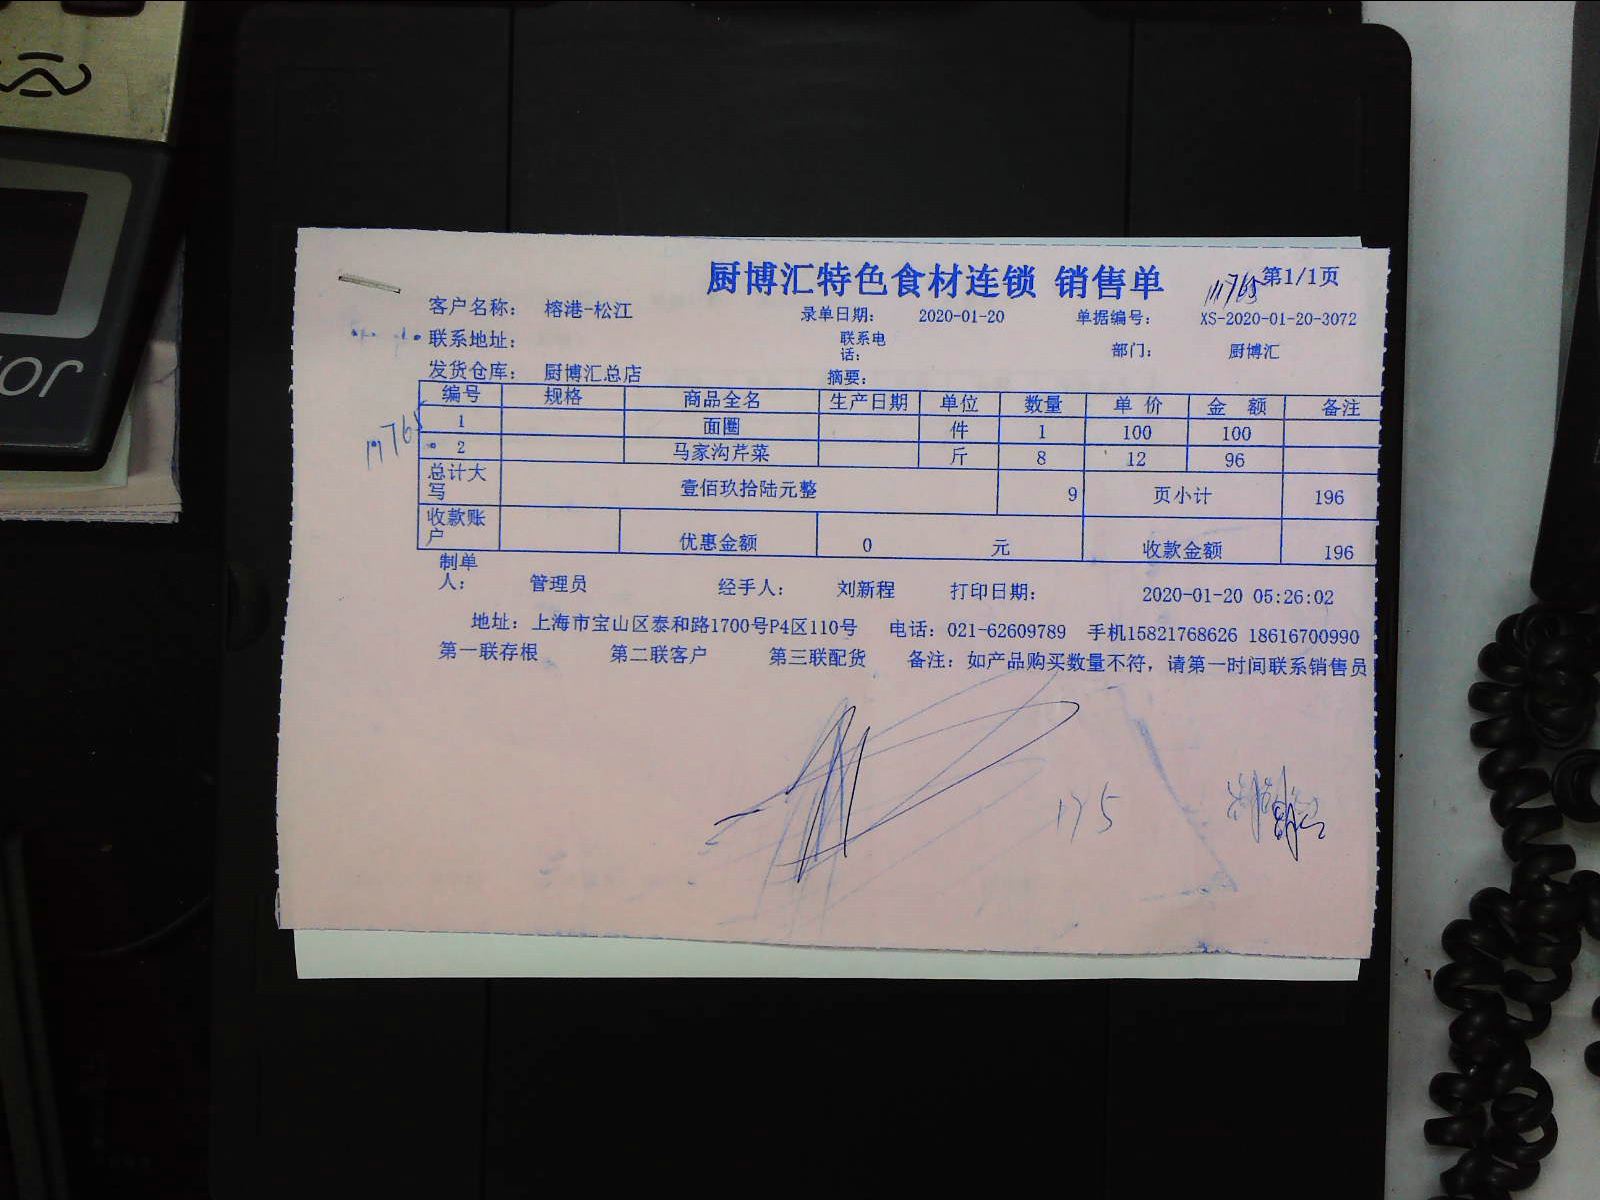 厨博汇特色食材连锁 销售单 第1/1页
客户名称： 榕港-松江 录单日期： 2020-01-20 单据编号： XS-2020-01-20-3072
联系地址： 联系电话： 部门： 厨博汇
发货仓库： 厨博汇总店 摘要：
编号 规格 商品全名 生产日期 单位 数量 单 价 金 额 备注
1 面圈 件 1 100 100
2 马家沟芹菜 斤 8 12 96
总计大写 壹佰玖拾陆元整 9 页小计 196
收款账户 优惠金额 0 元 收款金额 196
制单人： 管理员 经手人： 刘新程 打印日期： 2020-01-20 05:26:02
地址：上海市宝山区泰和路1700号P4区110号 电话：021-62609789 手机15821768626 18616700990
第一联存根 第二联客户 第三联配货 备注：如产品购买数量不符，请第一时间联系销售员
175